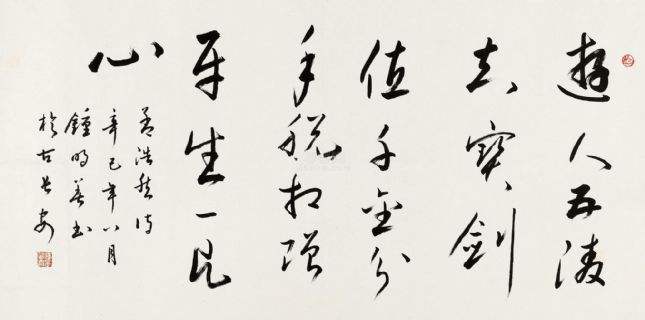 遊人五陵
去寶劍
值千金分
手脱相贈
平生一片
心
孟浩然诗
辛巳年八月
鍾明善书
於古长安